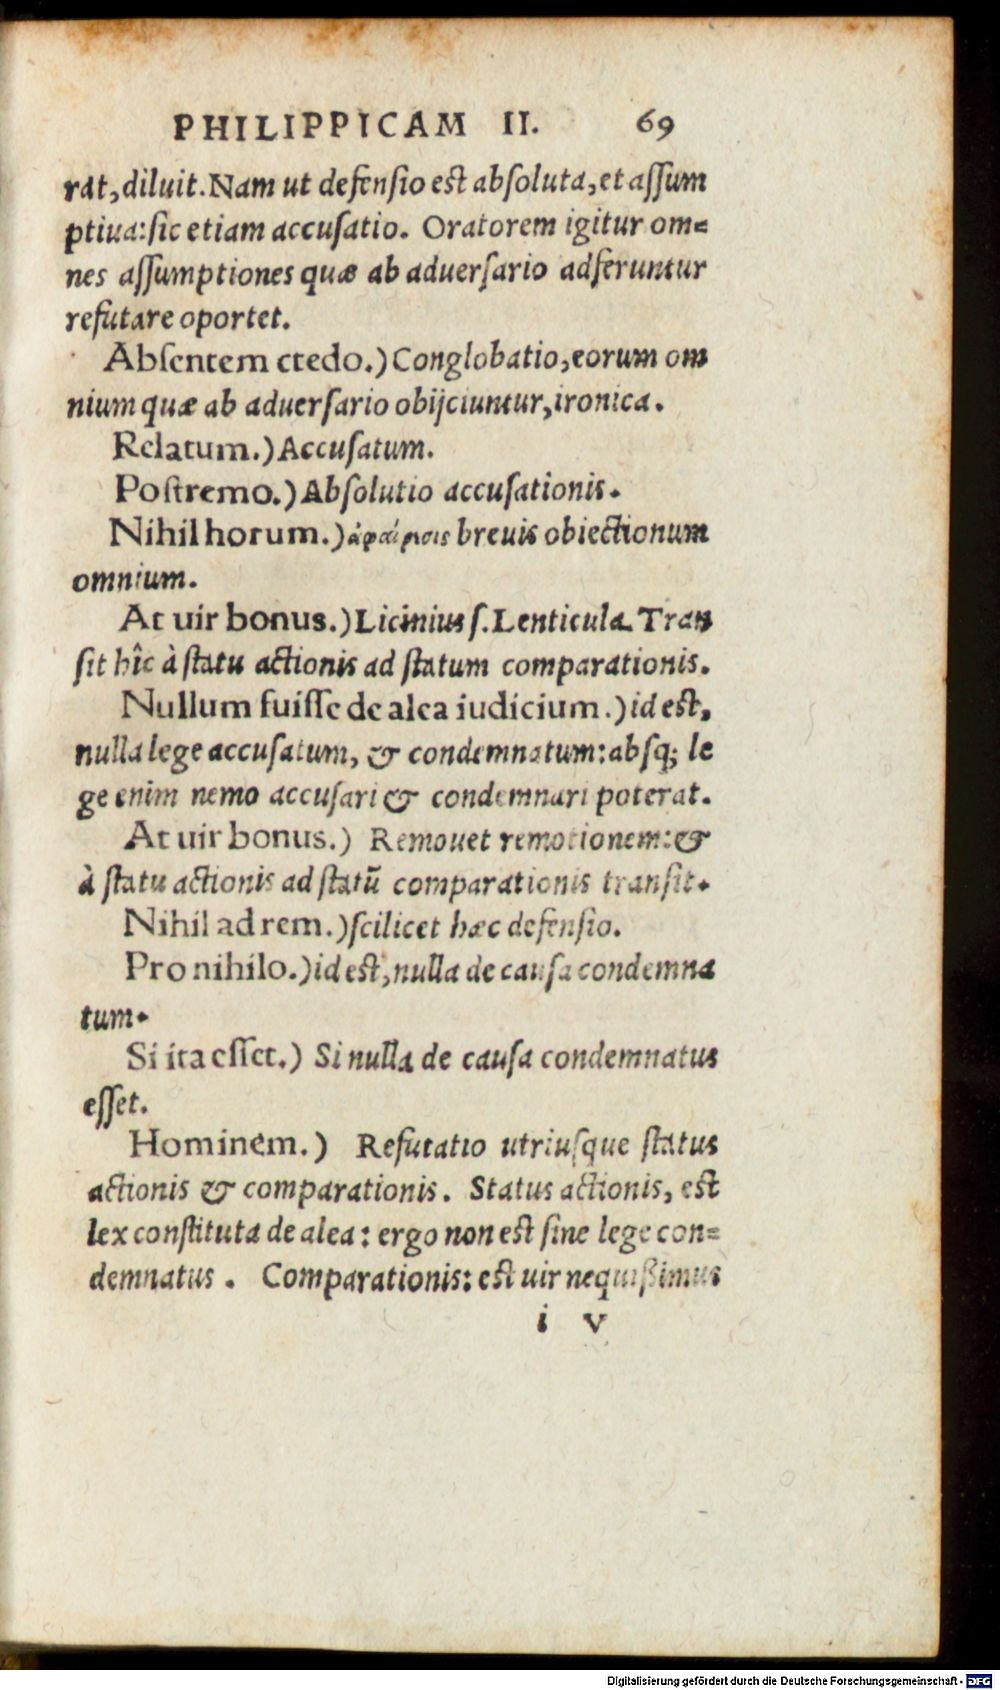 PHILIPPICAM II. 69
rat, diluit. Nam ut defensio est absoluta, et assum
ptiua: sic etiam accusatio. Oratorem igitur om=
nes assumptiones quæ ab aduersario adferuntur
refutare oportet.
Absentem credo.) Conglobatio, eorum om
nium quæ ab aduersario obijciuntur, ironica.
Relatum.) Accusatum.
Postremo.) Absolutio accusationis.
Nihil horum.) ἀφαίρεσις breuis obiectionum
omnium.
At uir bonus.) Licinius s. Lenticula. Tran
sit hîc à statu actionis ad statum comparationis.
Nullum fuisse de alea iudicium.) id est,
nulla lege accusatum, & condemnatum: absq; le
ge enim nemo accusari & condemnari poterat.
At uir bonus.) Remouet remotionem: &
à statu actionis ad statū comparationis transit.
Nihil ad rem.) scilicet hæc defensio.
Pro nihilo.) id est, nulla de causa condemna
tum.
Si ita esset.) Si nulla de causa condemnatus
esset.
Hominem.) Refutatio utriusque status
actionis & comparationis. Status actionis, est
lex constituta de alea: ergo non est sine lege con=
demnatus. Comparationis: est uir nequißimus
i v
Digitalisierung gefördert durch die Deutsche Forschungsgemeinschaft - DFG